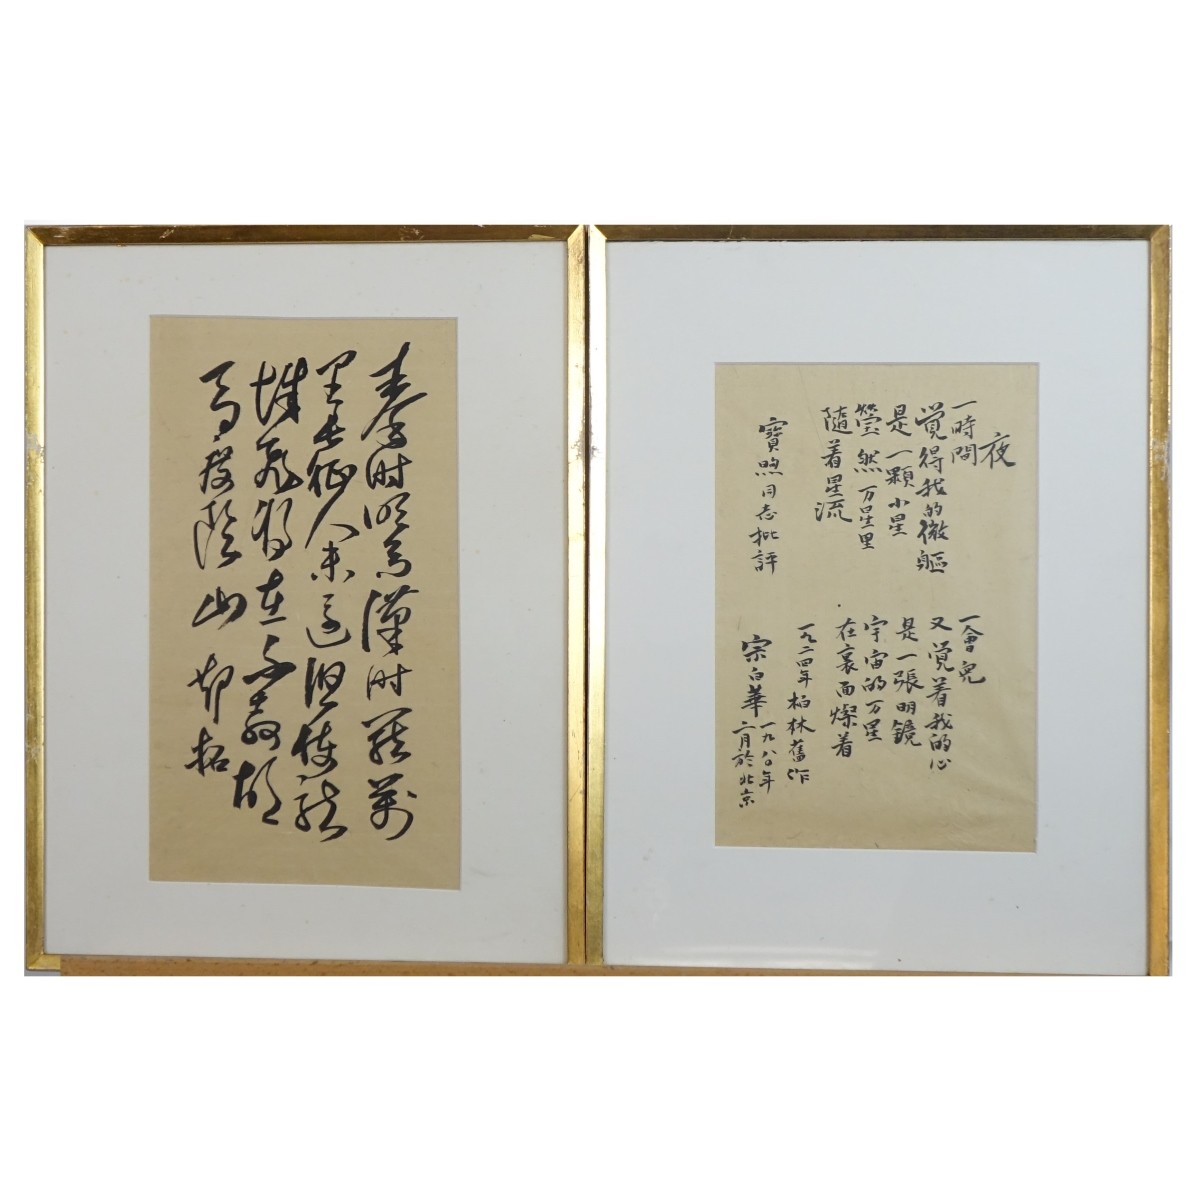 秦时明月漢时関萬
里长征人未还但使龙
城飛将在不教胡
马度陰山
夜
一時間
覺得我的微軀
是一顆小星
瑩然万星里
隨着星流
一會兒
又覺着我的心
是一張明鏡
宇宙的万星
在裏面燦着
一九二四年柏林舊作
寶煦同志批評
宗白華
一九八〇年
二月於北京